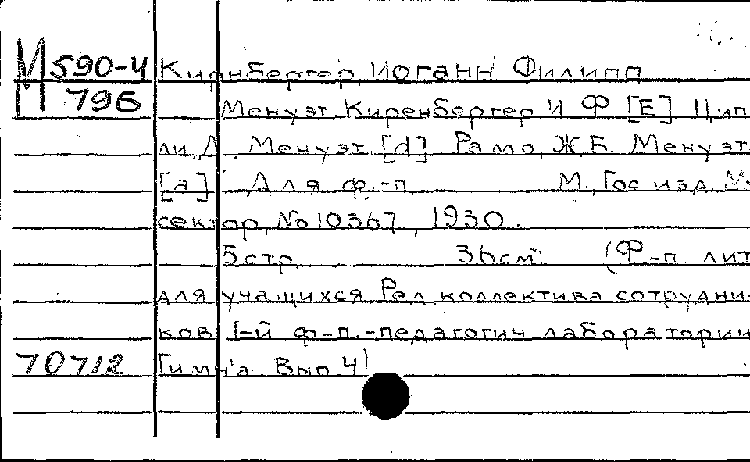 М 590-4 Кирнбергер, Иоганн Филипп
П 796 Менуэт, Киренбергер И. Ф. [E] Цип
ли, Д. Менуэт. [d] Рамо, Ж.Б. Менуэт
[a] Для ф.-п. М., Гос. изд. Му
сектор, No 10367, 1930.
5 стр. 36 см. (Ф-п. лит
для учащихся Ред. коллектива сотрудни-
ков 1-й ф-п.-педагогич. лаборатории
70712 Гимн'а. Вып. 4)